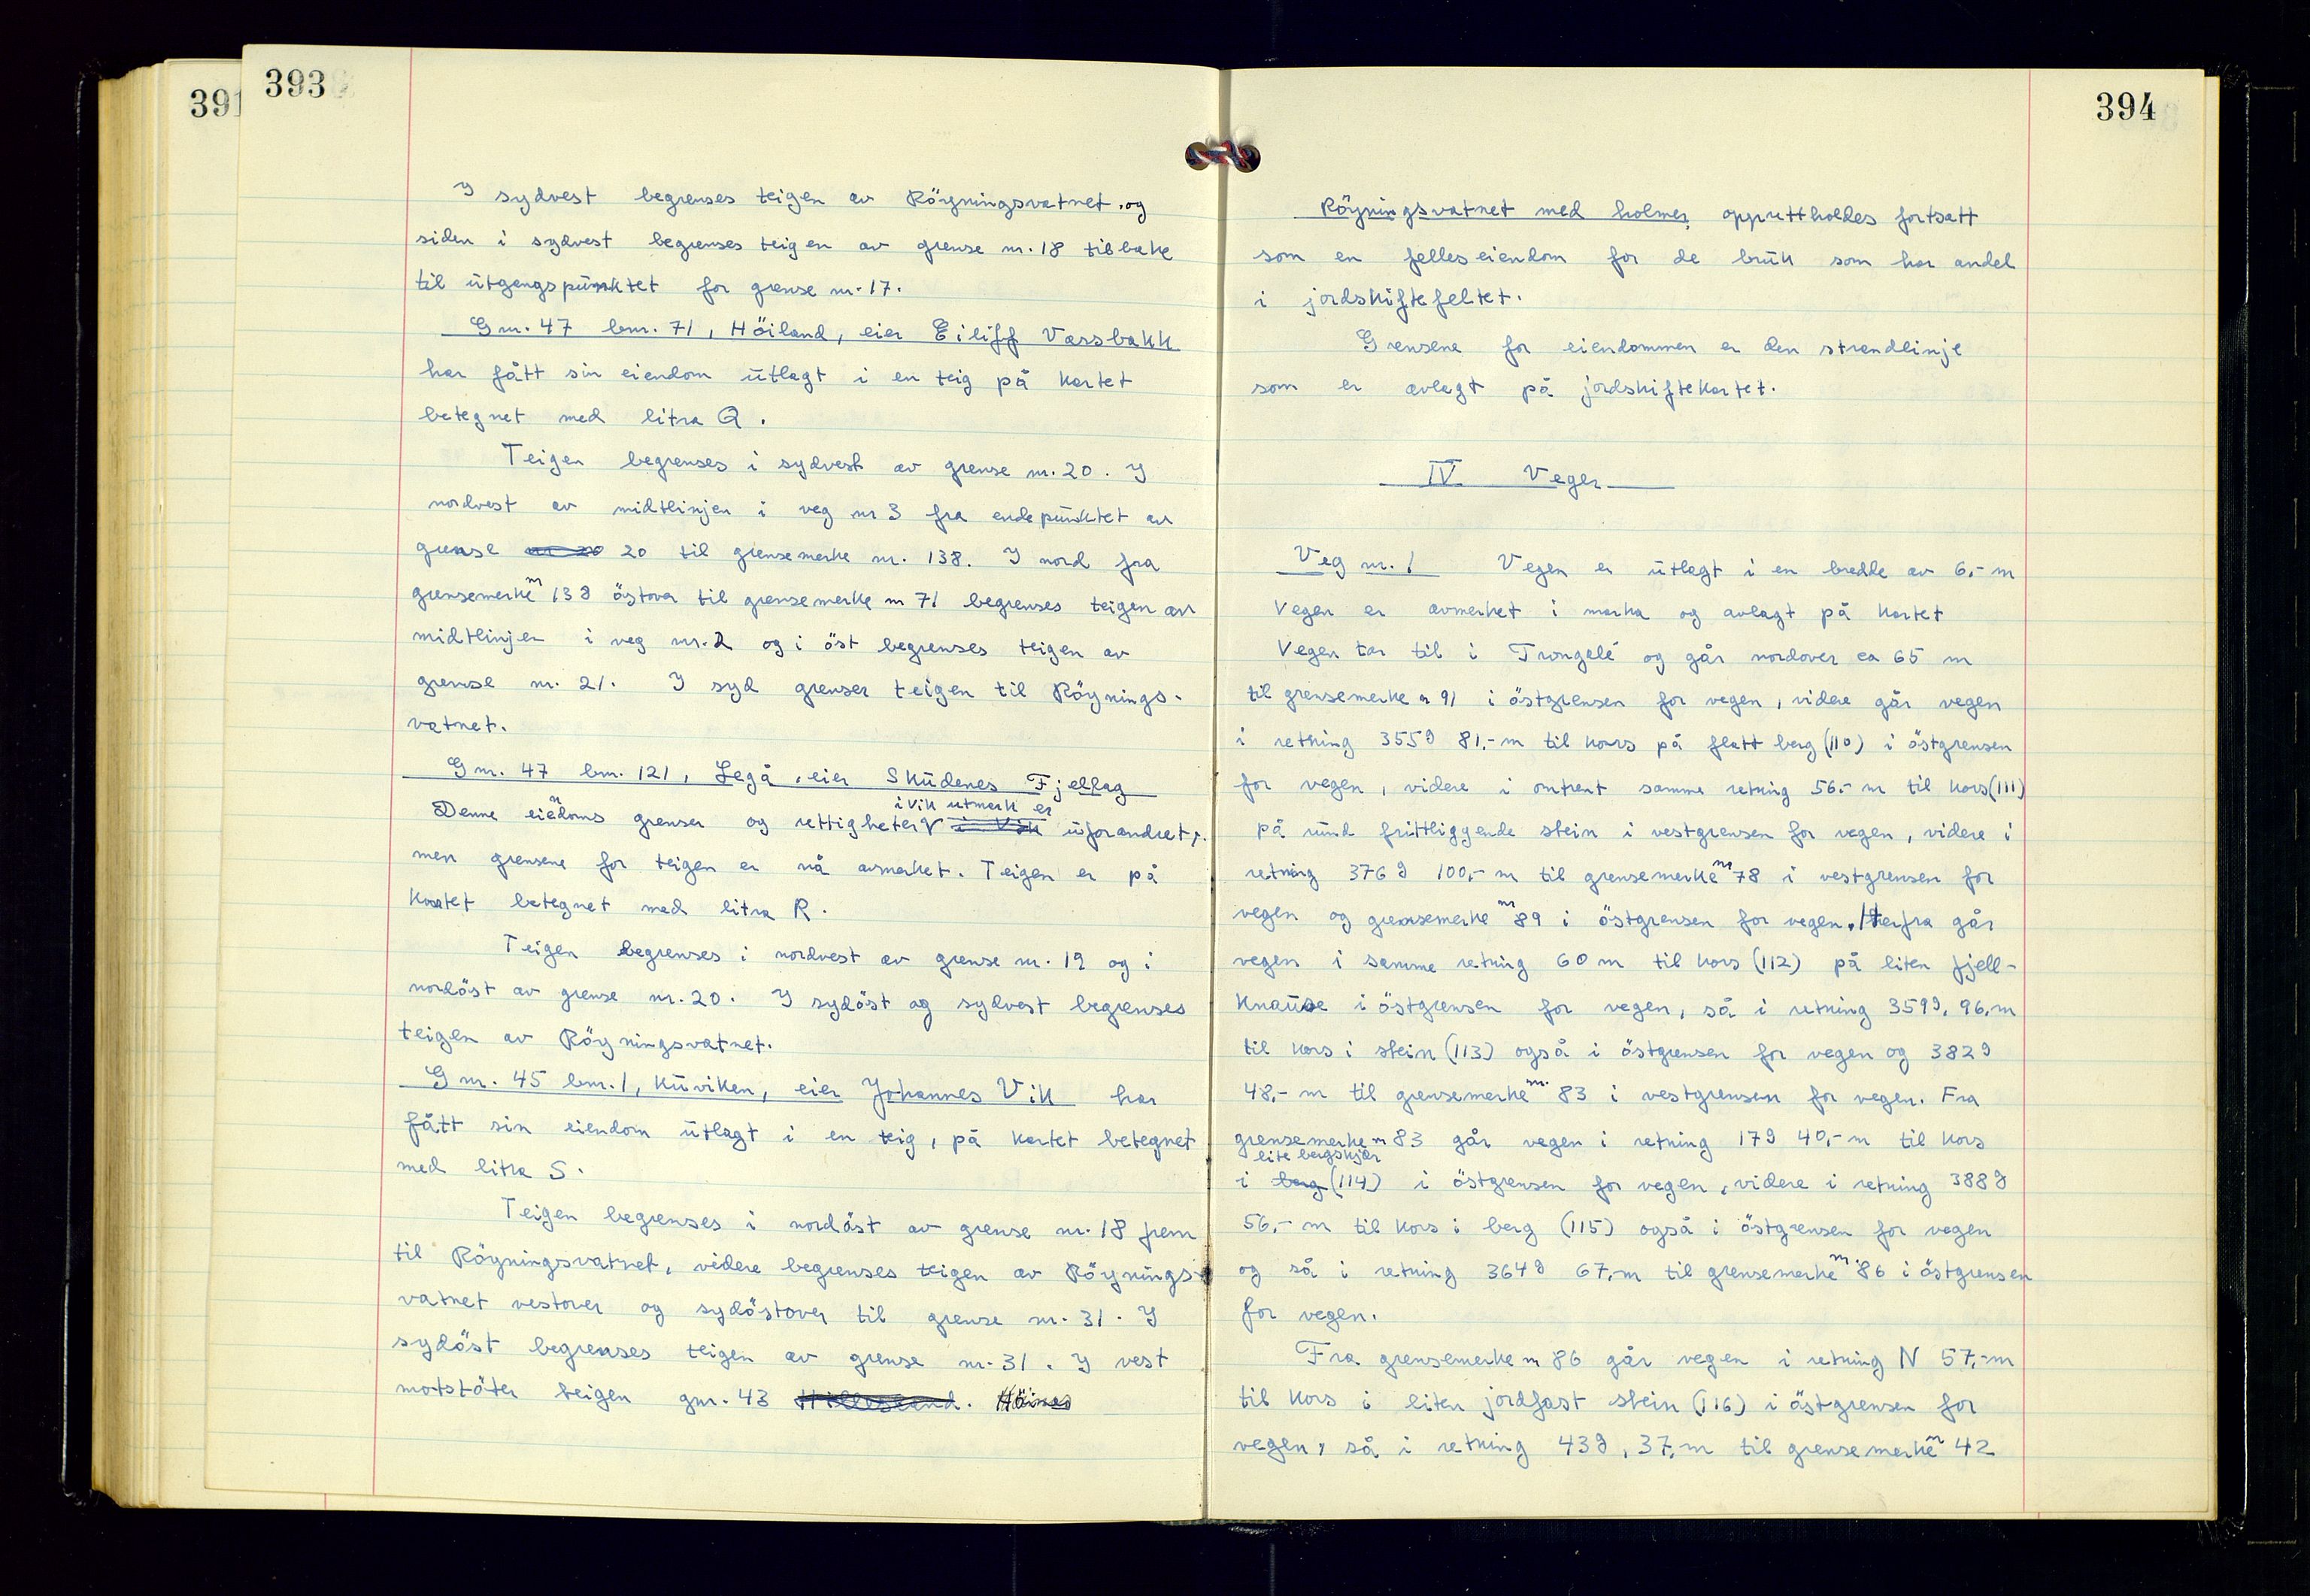 391
393
I sydvest begrenses teigen av Röyningsvatnet, og
siden i sydvest begrenses teigen av grense nr. 18 tilbake
til utgangspunktet for grense nr. 17.
Gnr. 47 bnr. 71, Höiland, eier Eiliff Vassbakk
har fått sin eiendom utlagt i en teig på kartet
betegnet med litra Q.
Teigen begrenses i sydvest av grense nr. 20. I
nordvest av midtlinjen i veg nr 3 fra endepunktet av
grense nr 20 20 til grensemerke nr. 138. I nord fra
grensemerke nr 139 östover til grensemerke nr 71 begrenses teigen av
midtlinjen i veg nr. 2 og i öst begrenses teigen av
grense nr. 21. I syd grenser teigen til Röynings-
vatnet.
Gnr. 47 bnr. 121, Legå, eier Skudenes Fjellag
i Vik utmark er
Denne eiendoms grenser og rettigheter i Vik uforandret,
men grensene for teigen er nå avmerket. Teigen er på
kartet betegnet med litra R.
Teigen begrenses i nordvest av grense nr. 19 og i
nordöst av grense nr. 20. I sydöst og sydvest begrenses
teigen av Röyningsvatnet.
Gnr. 45 bnr. 1, Kuviken, eier Johannes Vik har
fått sin eiendom utlagt i en teig, på kartet betegnet
med litra S.
Teigen begrenses i nordöst av grense nr. 18 frem
til Röyningsvatnet, videre begrenses teigen av Röynings-
vatnet vestover og sydöstover til grense nr. 31. I
sydöst begrenses teigen av grense nr. 31. I vest
motstöter teigen gnr. 43 Hillesland. Höines
394
Röyningsvatnet med holmer, opprettholdes fortsatt
som en felleseiendom for de bruk som har andel
i jordskiftefeltet.
Grensene for eiendommen er den strandlinje
som er avlagt på jordskiftekartet.
IV Veger
Veg nr. 1 Vegen er utlagt i en bredde av 6,- m
Vegen er avmerket i marka og avlagt på kartet
Vegen tar til i Trongelé og går nordover ca 65 m
til grensemerke nr 91 i östgrensen for vegen, videre går vegen
i retning 355g 81,- m til kors på flatt berg (110) i östgrensen
for vegen, videre i omtrent samme retning 56,- m til kors (111)
på rund frittliggende stein i vestgrensen for vegen, videre i
retning 376g 100,- m til grensemerke nr 78 i vestgrensen for
vegen og grensemerke nr 89 i östgrensen for vegen. Herfra går
vegen i samme retning 60 m til kors (112) på liten fjell-
knause i östgrensen for vegen, så i retning 359g, 96,- m
til kors i stein (113) også i östgrensen for vegen og 382g
48,- m til grensemerke nr. 83 i vestgrensen for vegen. Fra
grensemerke nr 83 går vegen i retning 17g 40,- m til kors
lite bergskjær
i berg (114) i östgrensen for vegen, videre i retning 388g
56,- m til kors i berg (115) også i östgrensen for vegen
og så i retning 364g 67,- m til grensemerke nr 86 i östgrensen
for vegen.
Fra grensemerke nr 86 går vegen i retning N 57,- m
til kors i liten jordfast stein (116) i östgrensen for
vegen, så i retning 43g, 37,- m til grensemerke nr 42